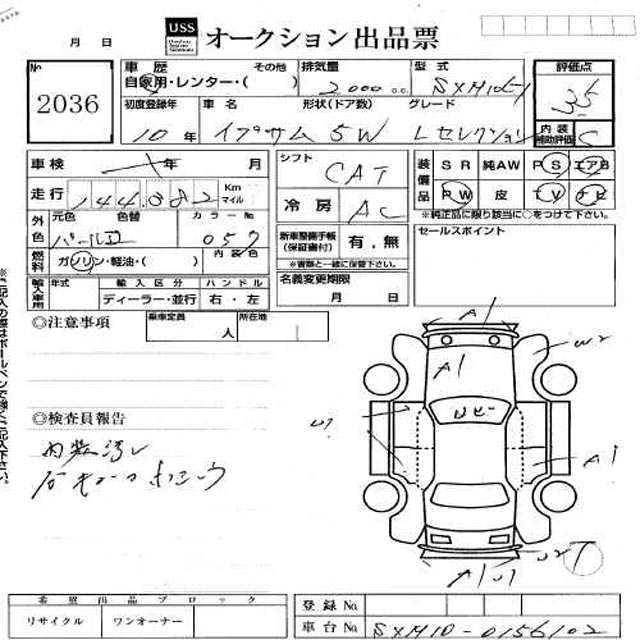 月 日 USS オークション出品票
No
2036
車歴 その他
自家用・レンター・( )
排気量
2000 c.c.
型式
SXM10
評価点
3.5
内装
補助評価 C
初度登録年
10年
車名
イプサム
形状(ドア数)
5W
グレード
Lセレクション
車検 年 月
走行 144,082 Km
マイル
シフト
CAT
冷房
AC
装備品
SR 純AW PS エアB
PW 皮 TV ナビ
※純正品に限り該当に○をつけて下さい。
外色
元色 色替 カラーNo
パールII 057
新車整備手帳
(保証書付)
有.無
※書類と一緒に保管下さい。
セールスポイント
燃料
ガソリン・軽油・( )
内装色
名義変更期限
月 日
輸入車用
年式 輸入区分 ハンドル
ディーラー・並行 右・左
◎注意事項
乗車定員
人
所在地
A1
W2
A1
U1
A1
◎検査員報告
内装汚レ
U2
A1 U1
希望出品ブロック
リサイクル ワンオーナー
登録No
車台No SXM10-0156102